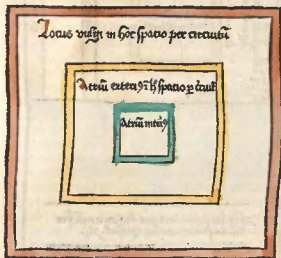 Locus vulgi in hoc spatio per circuitū
Atriū exteri⁹ ī h̄ spatio ꝑ ċcuitū
Atriū interi⁹